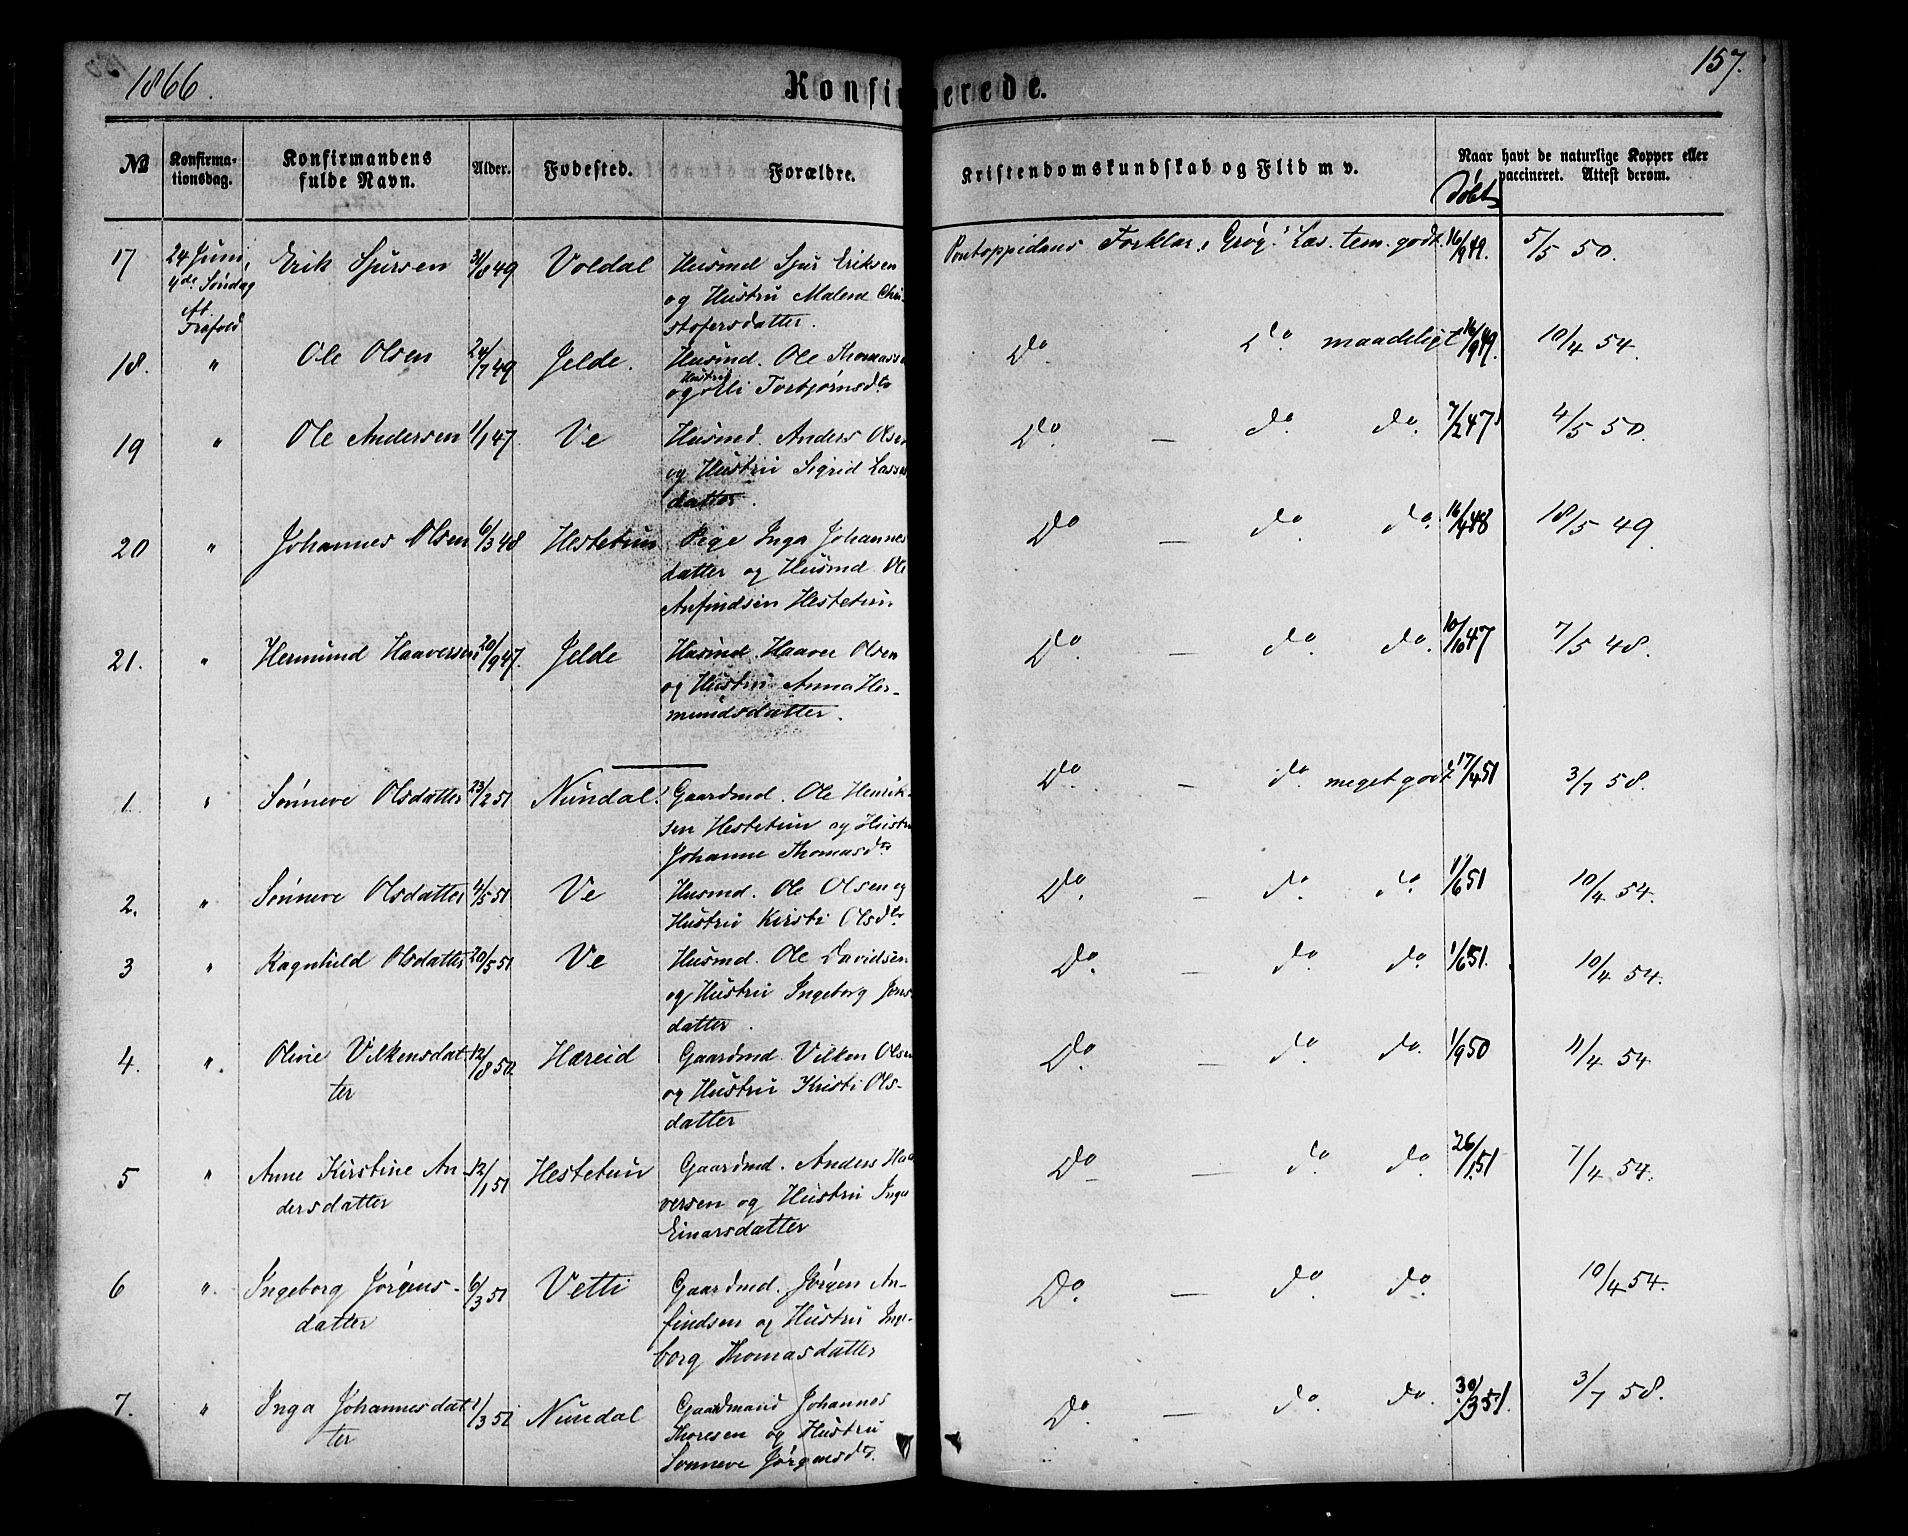 1866.
Konfirmerede.
157.
№
Konfirma-
tionsdag.
Konfirmandens
fulde Navn.
Alder.
Fødested.
Forældre.
Kristendomskundskab og Flid m v.
Naar havt de naturlige Kopper eller
vaccineret. Attest derom.
Døbt
17 24 Juni, Erik Sjursen 31/8 49 Voldal Husmd Sjur Eriksen Pontoppidans Forklar, Grøg. Læs. tem. godt. 16/9 49. 5/5 50.
4de Søndag og Hustru Malene Chri-
At. stofersdatter.
Trefold
18. " Ole Olsen 24/7 49 Jelde. Husmd. Ole Thomass Do Do maadeligt 16/9 49. 10/4 54.
og Hustru Olli Torbjørnsdtr
19 " Ole Andersen 1/1 47. Ve Husmd. Anders Olsen Do. — do do. 7/2 47 4/5 50.
og Hustru Sigrid Lasse
datter.
20 " Johannes Olsen 6/3 48 Hestetun Pige Inga Johannes Do — do do. 16/4 48 18/5 49.
datter og Husmd Ole
Anfindsen Hestetun
21. " Hermund Haaversen 20/9 47. Jelde Husmd. Haaver Olsen Do. — do. do. 10/10 47 7/5 48.
og Hustru Anna Her-
mundsdatter.
1. " Sønneve Olsdatter 23/2 51 Nundal. Gaardmd. Ole Henrik- Do — do. meget godt 17/4 51 3/7 58.
sen Hestetun og Hustru
Johanne Thomasdtr
2. " Sønneve Olsdatter 4/5 51 Ve Husmd. Ole Olsen og Do. — do. do. 1/6 51 10/4 54.
Hustru Kirsti Olsdtr
3 " Ragnhild Olsdatter 20/5 51 Ve Husmd. Ole Davidsen Do. — do. do. 1/6 51. 10/4 54.
og Hustru Ingeborg Jens
datter.
4. " Oline Vilkensdat- 12/8 50. Hæreid Gaardmd. Vilken Olsen Do. — do. do. 1/9 50 11/4 54.
ter og Hustru Kristi Ols-
datter
5 " Anne Kirstine An- 12/1 51 Hestetun Gaardmd. Anders Haa Do — do. do. 26/1 51 7/4 54.
dersdatter versen og Hustru Inga
Einarsdatter
6 " Ingeborg Jørgens- 6/3 51 Vetti Gaardmd. Jørgen An- Do. — do. do. 10/4 54.
datter findsen og Hustru Inge-
borg Thomasdatter
7. " Inga Johannesdat 1/3 51 Nundal Gaardmand Johannes Do. — do. do. 30/3 51. 3/7 58.
ter Thoresen og Hustru
Sønneve Jørgensdtr.